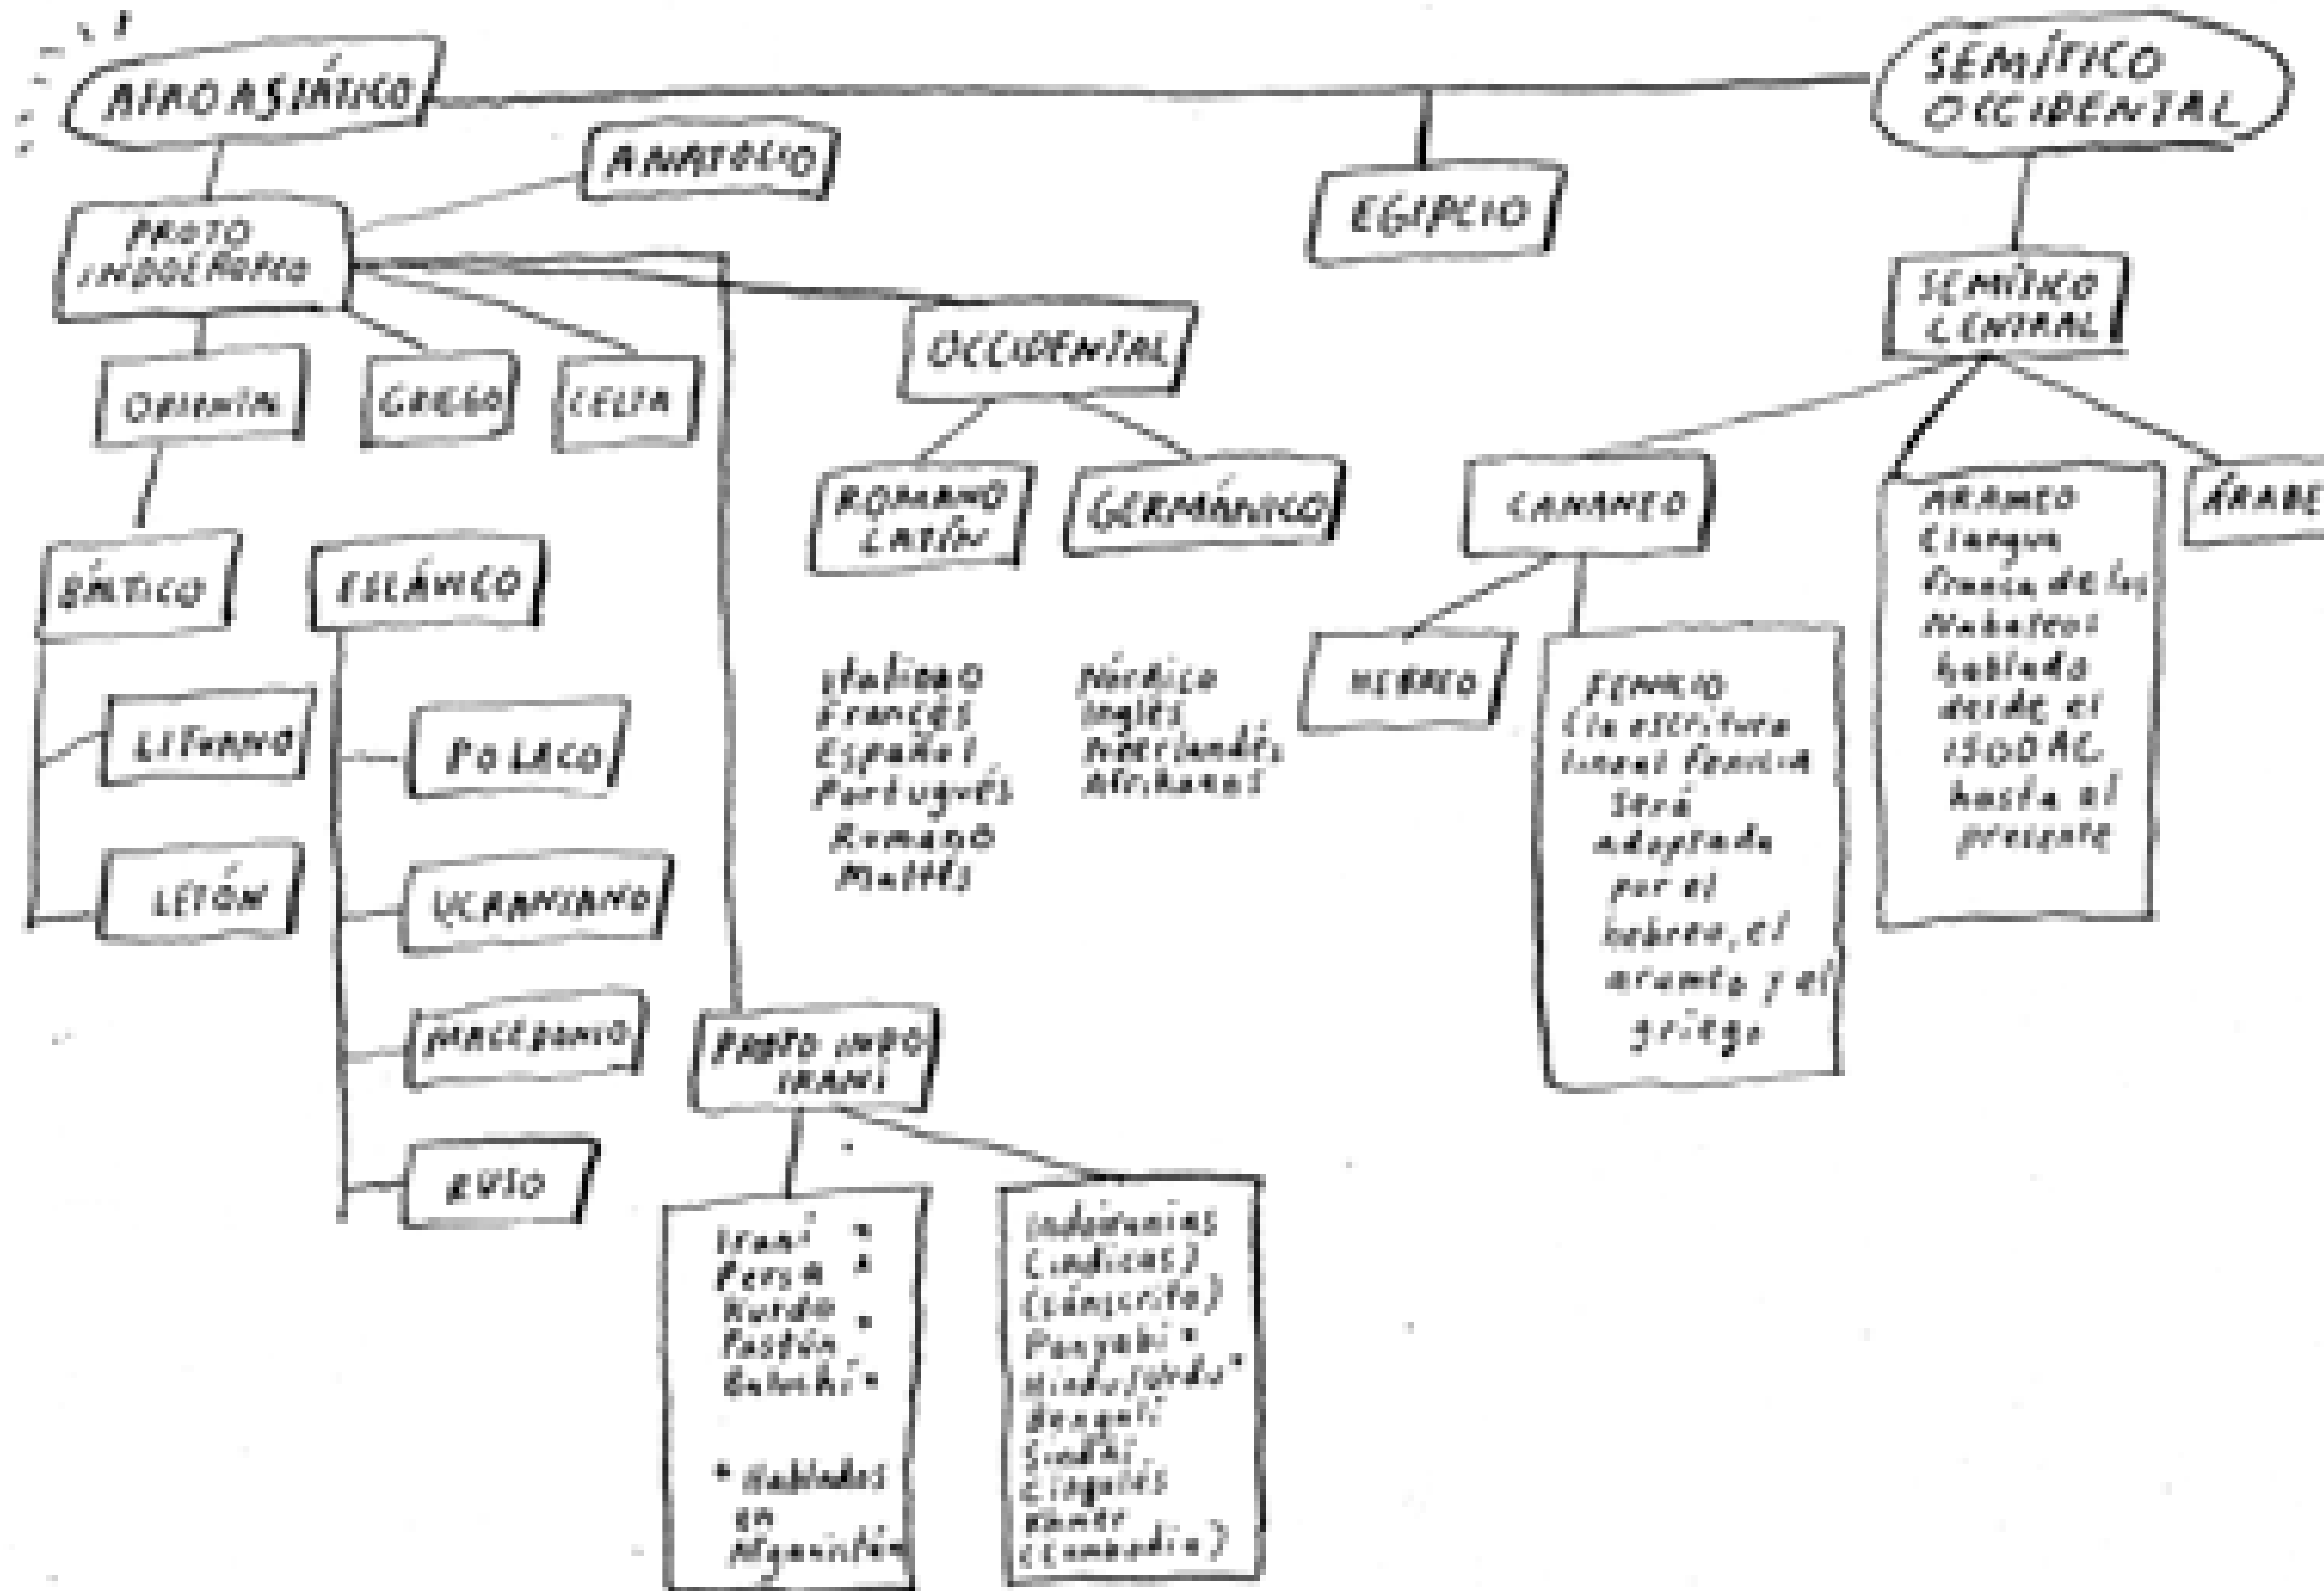 AFROASIÁTICO
SEMÍTICO
OCCIDENTAL
ANATOLIO
EGIPCIO
PROTO
INDOEUROPEO
SEMÍTICO
CENTRAL
OCCIDENTAL
ORIENTAL
GRIEGO
CELTA
ROMANO
LATÍN
GERMÁNICO
CANANEO
ARAMEO
(langua
franca de los
Nabateos
hablado
desde el
1500 AC.
hasta el
presente
ÁRABE
BÁLTICO
ESLÁVICO
LITUANO
LETÓN
POLACO
UCRANIANO
MACEDONIO
RUSO
Italiano
Francés
Español
Portugués
Rumano
Maltés
Nórdico
Inglés
Neerlandés
Afrikaans
HEBREO
FENICIO
(la escritura
lineal fenicia
será
adoptada
por el
hebreo, el
arameo y el
griego
PROTO INDO
IRANÍ
Iraní *
Persa *
Kurdo
Pastún *
Baluchi *
* Hablados
en
Afganistán
Indoiranias
(indicas)
(sánscrito)
Panyabi *
Hindu/Urdu *
Bengalí
Sindhi
Cingalés
Khmer
(Cambodia)